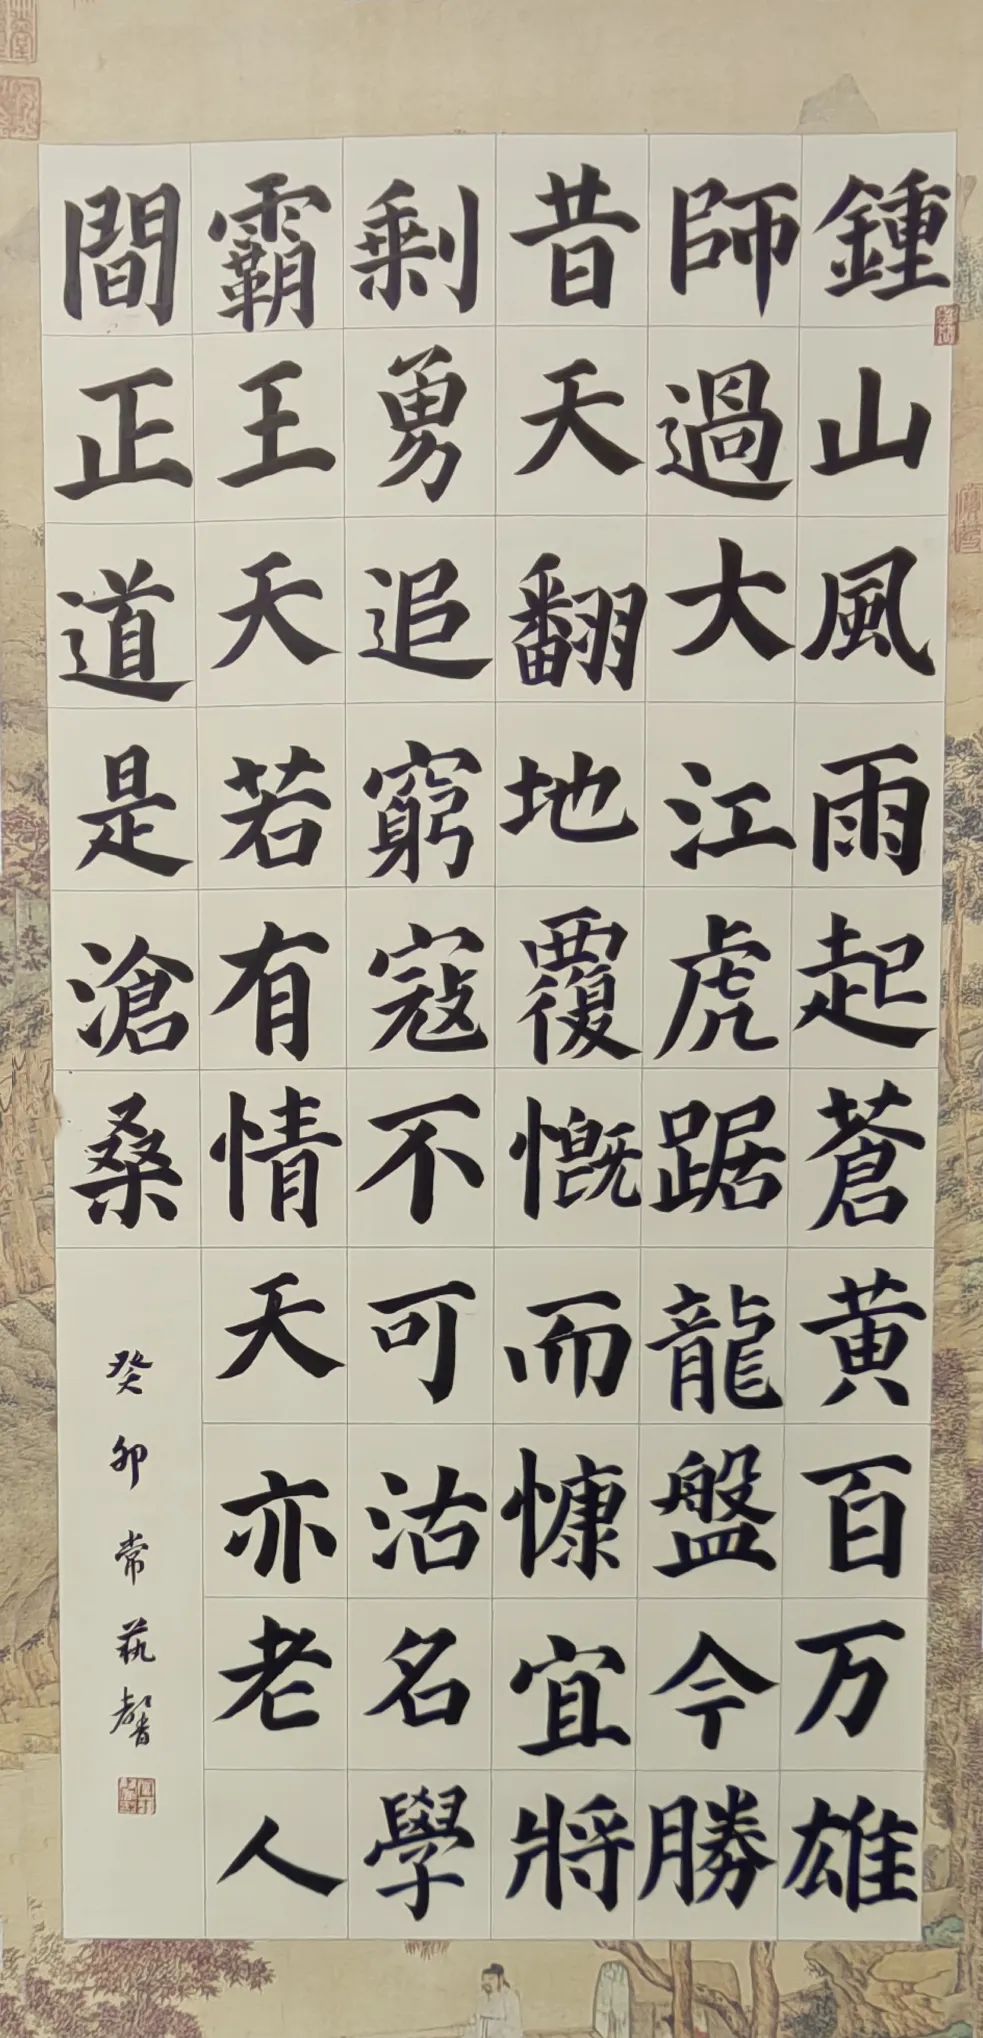 鍾山風雨起蒼黃百万雄
師過大江虎踞龍盤今勝
昔天翻地覆慨而慷宜將
剩勇追窮寇不可沽名學
霸王天若有情天亦老人
間正道是滄桑
癸卯常藝馨